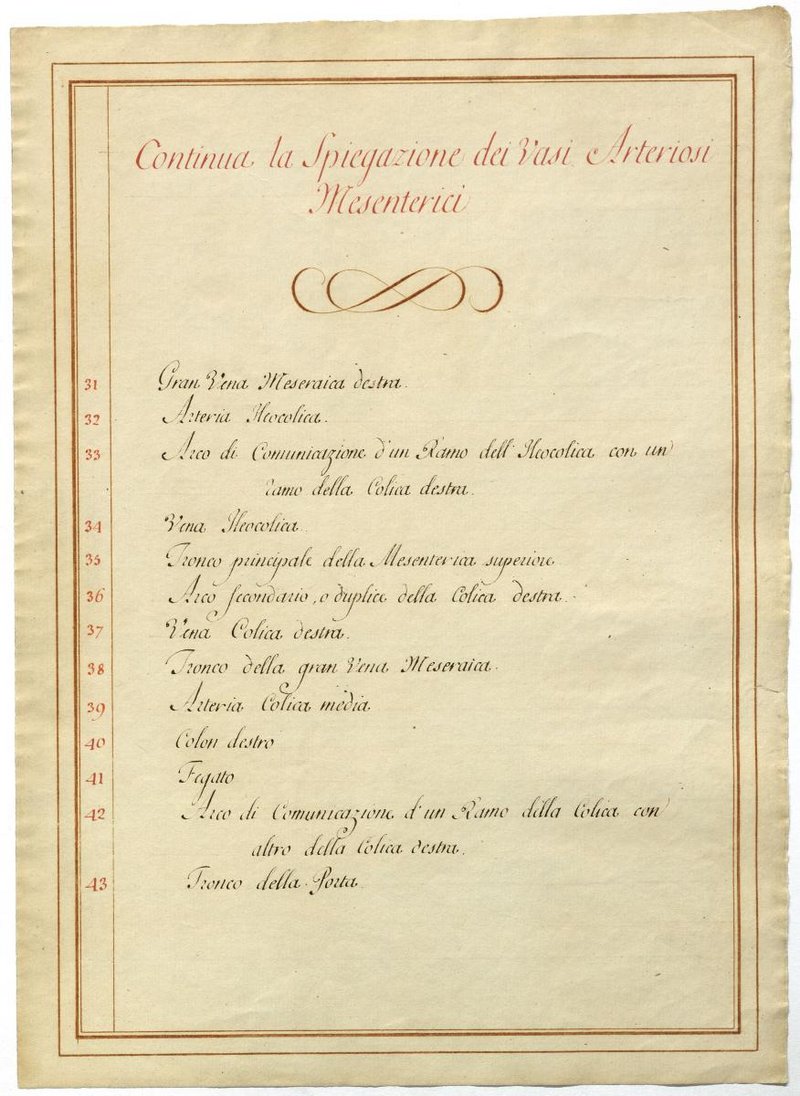 Continua la Spiegazione dei Vasi Arteriosi
Mesenterici
31 Gran Vena Meseraica destra.
32 Arteria Ileocolica.
33 Arco di Comunicazione d'un Ramo dell'Ileocolica con un
ramo della Colica destra.
34 Vena Ileocolica.
35 Tronco principale della Mesenterica superiore
36 Arco secondario, o duplice della Colica destra.
37 Vena Colica destra.
38 Tronco della gran Vena Meseraica.
39 Arteria Colica media
40 Colon destro
41 Fegato
42 Arco di Comunicazione d'un Ramo della Colica con
altro della Colica destra.
43 Tronco della Porta.